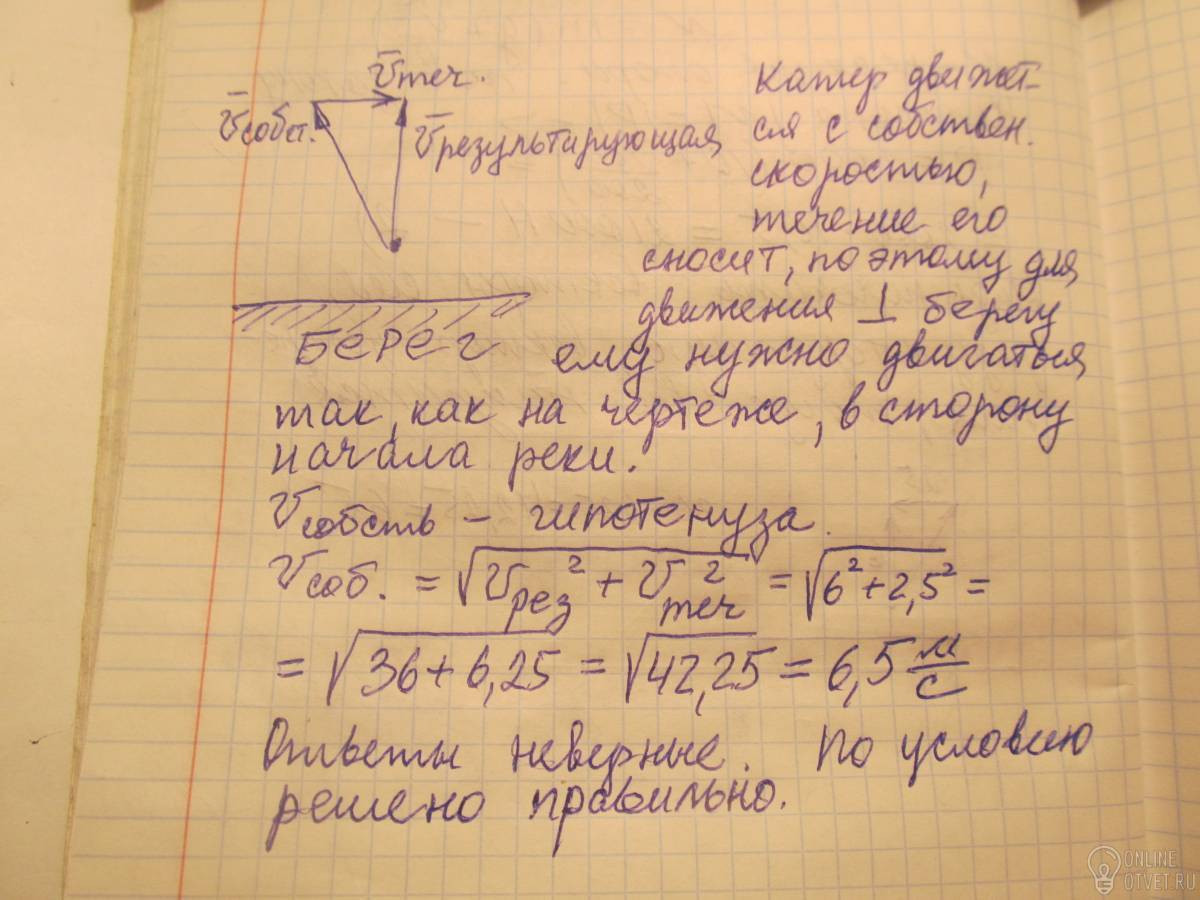 v̅теч.
v̅собст.
v̅результирующая
Катер движет-
ся с собствен.
скоростью,
течение его
сносит, поэтому для
движения ⊥ берегу
БЕРЕГ
ему нужно двигаться
так, как на чертеже, в сторону
начала реки.
Vсобсть – гипотенуза.
Vсоб. = √(Vрез² + Vтеч²) = √(6² + 2,5²) =
= √(36 + 6,25) = √(42,25) = 6,5 м/с
Ответы неверные. По условию
решено правильно.
ONLINE
OTVET.RU